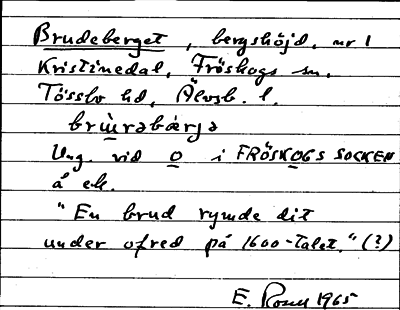 Brudeberget, bergshöjd, nr 1
Kristinedal, Fröskogs sn.
Tössbo hd, Älvsb. l.
brù̀rəbærjə
Ung. vid O i FRÖSKOGS SOCKEN
å ek.
"En brud rymde dit
under ofred på 1600-talet." (?)
E. 1965